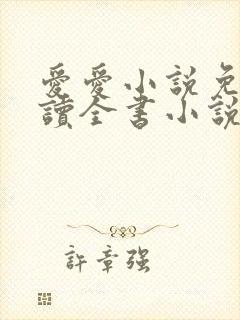 愛愛小說免
讀全書小說
許章強